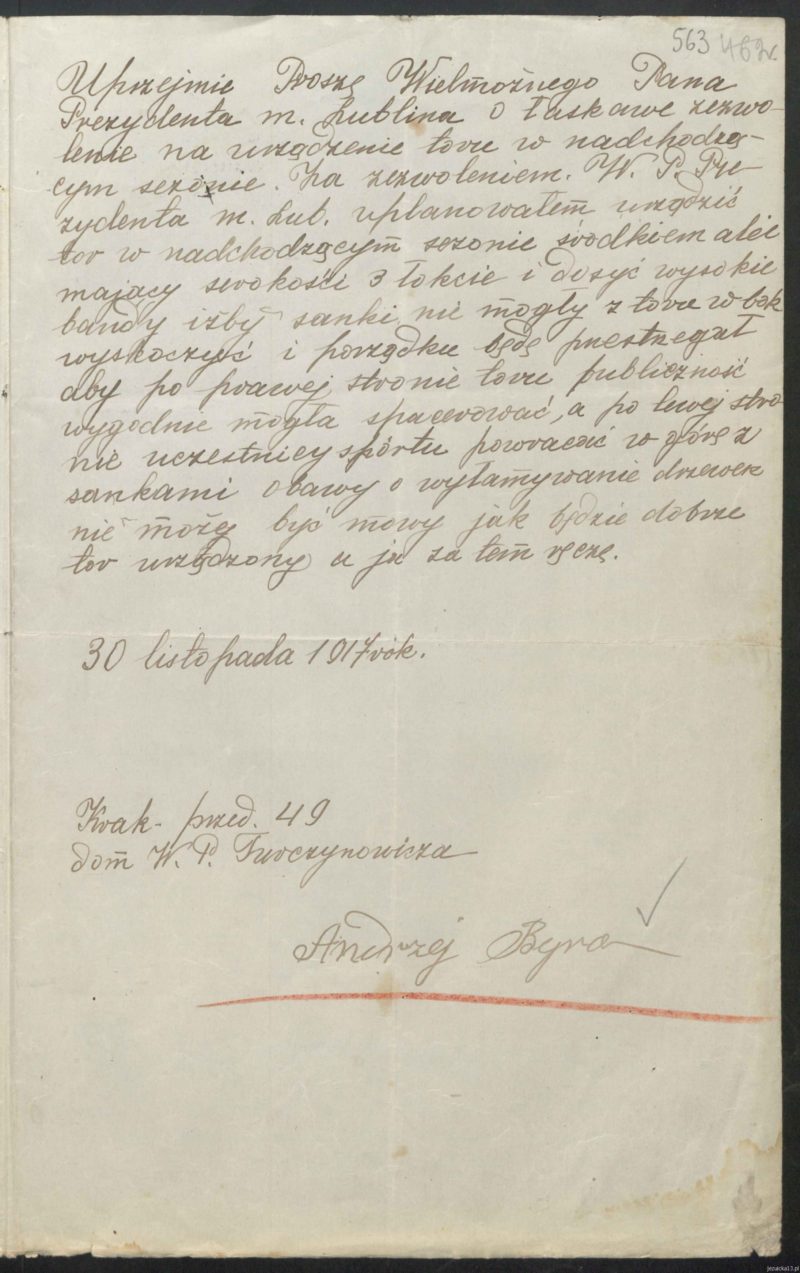 563 462r.
Uprzejmie Proszę Wielmożnego Pana
Prezydenta m. Lublina o łaskawe zezwo-
lenie na urządzenie toru w nadchodzą-
cym sezonie. Za zezwoleniem. W. P. Pre-
zydenta m. Lub. uplanowałem urządzić
tor w nadchodzącym sezonie środkiem alei
mający serokości 3 łokcie i dosyć wysokie
bandy iżby sanki nie mogły z toru w bok
wyskoczyć i porządku będę przestrzegał
aby po prawej stronie toru publiczność
wygodnie mogła spacerować, a po lewej stro
nie uczestnicy spórtu powracać w górę z
sankami obawy o wyłamywanie drzewek
nie może być mowy jak będzie dobrze
tor urządzony a ja za tem ręczę.
30 listopada 1917 rok.
Krak- przed. 49
dom W. P. Turczynowicza
Andrzej Byra
jezuicka13.pl